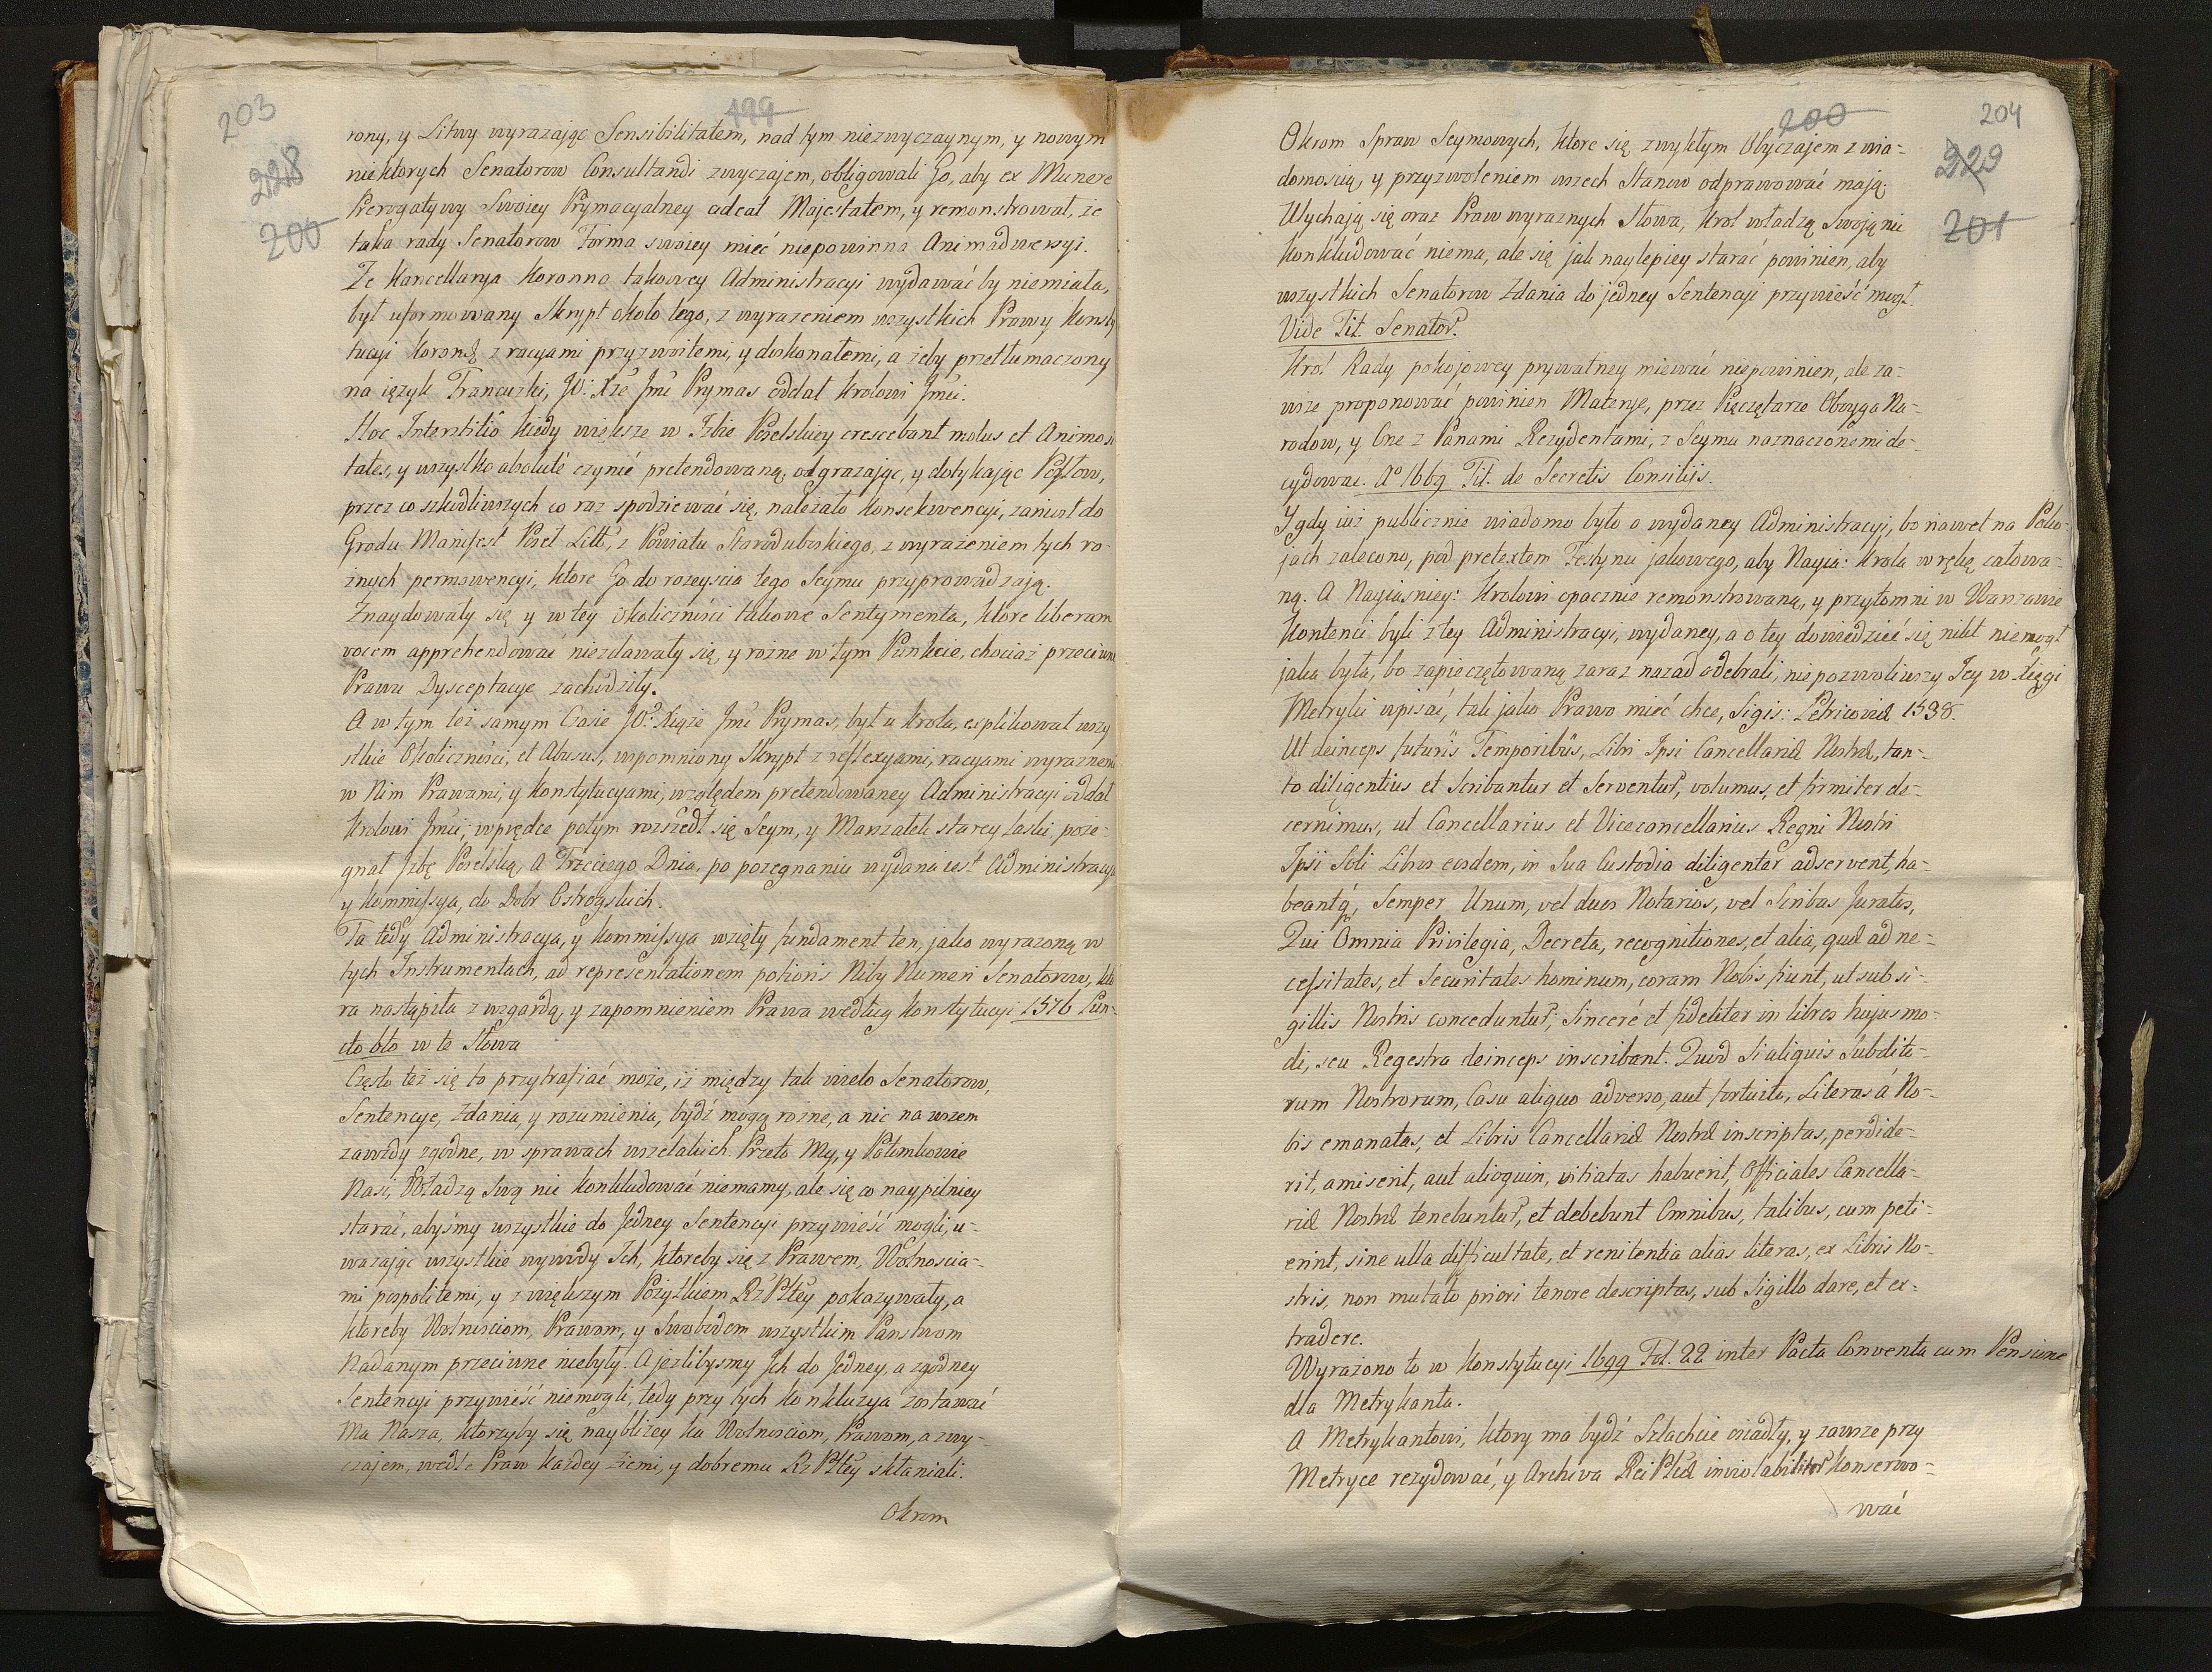 203
199
228
200
rony, y Litwy wyrazaiąc Sensibilitatem, nad tym niezwyczaynym, y nowym
niektorych Senatorow Consultandi zwyczajem, obligowali Go, aby ex Munere
Prerogatywy Swoiey Prymacyalney adeat Majestatem, y remonstrował, że
taka rady Senatorow Forma swoiey mieć niepowinna Animadwersyi.
Że Kancellarya Koronna takowey Administracyi wydawać by niemiała,
był uformowany Skrypt około tego, z wyrazeniem wszystkich Prawy Konsty
tucyi Koronæ z racyami przyzwoitemi, y doskonałemi, a żeby przetłumaczony
na ięzyk Francuzki, JO: Xże Jmć Prymas oddał Krolowi Jmći.
Hoc Interstitio kiedy większe w Izbie Poselskiey crescebant motus et Animosi
tates, y wszystko absoluté czynić pretendowaną, odgrazaiąc, y dotykaiąc Posłow,
przez co szkodliwszych co raz spodziewać się, należało Konsekwencyi, zaniosł do
Grodu Manifest Poseł Litt, z Powiatu Starodubskiego, z wyrażeniem tych ro-
żnych permowencyi, ktore Go do rozeyścia tego Seymu przyprowadzają.
Znaydowały się y w tey okoliczności takowe Sentymenta, ktore liberam
vocem apprehendować niezdawały się, y rożne w tym Punkcie, chociaż przeciwne
Prawu Dysceptacye zachodziły.
A w tym też samym Czasie JO: Xiąże Jmć Prymas, był u Krola, explikował wszy
stkie Okoliczności, et Abusus, wpomniony Skrypt z reflexyami, racyami wyraznemi
w Nim Prawami, y Konstytucyami, względem pretendowaney Administracyi oddał
Krolowi Jmći; wprędce potym rozszedł się Seym, y Marszałek starey Laski, poże-
gnał Jzbę Poselską, A Trzeciego Dnia, po pozegnaniu wydana iest Administracya
y Kommissya, do Dobr Ostrogskich.
Ta tedy Administracya, y Kommissya wzięły fundament ten, jako wyrazoną w
tych Instrumentach, ad representationem potioris Niby Numeri Senatorow, kto
ra nastąpiła z wzgardą, y zapomnieniem Prawa według Konstytucyi 1576 Pun-
cto 6to w te Słowa
Często też się to przytrafiać może, iż między tak wielo Senatorow,
Sentencye, Zdania, y rozumienia, bydź mogą rożne, a nie na wszem
zawżdy zgodne, w sprawach wszelakich. Przeto My, y Potomkowie
Nasi, Władzą Swą nic Konkludować niemamy, ale się co naypilniey
starać, abyśmy wszystkie do Jedney Sentencyi przywieść mogli, u-
wazając wszystkie wywody Ich, ktoreby się z Prawem, Wolnościa-
mi pospolitemi, y z większym Pożytkiem RzPltey pokazywały, a
ktoreby Wolnościom, Prawom, y Swobodom wszystkim Panstwom
Nadanym przeciwne niebyły. A jezlibysmy Jch do Jedney, a zgodney
Sentencyi przywieść niemogli, tedy przy tych Konkluzya zostawać
Ma Nasza, ktorzyby się naybliżey ku Wolnościom, Prawom, a zwy-
czajem, wedle Praw każdey Ziemi, y dobremu RzPltey skłaniali.
Okrom
200
204
229
201
Okrom Spraw Seymowych, ktore się zwykłym Obyczajem z wia-
domością, y przyzwoleniem wszech Stanow odprawować mają.
Wychają się oraz Praw wyraznych Słowa, Krol władzą Swoją nic
Konkludować niema, ale się jak naylepiey starać powinien, aby
wszystkich Senatorow Zdania do jedney Sentencyi przywieść mogł.
Vide Tit. Senator.
Krol Rady pokojowey prywatney miewać niepowinien, ale za-
wsze proponować powinien Materye, przez Pięczętarze Oboyga Na-
rodow, y One z Panami Rezydentami, z Seymu naznaczonemi de-
cydować. Aº 1669 Tit. de Secretis Consiliis.
Y gdy iuż publicznie wiadomo było o wydaney Administracyi, bo nawet na Poko-
jach zalecono, pod pretextem Festynu jakowego, aby Nayia: Krola w rękę całowa-
no. A Nayiaśniey: Krolowi opacznie remonstrowaną, y przytomni w Warszawie
Kontenci byli z tey Administracyi, wydaney, a o tey dowiedzieć się nikt niemogł
jaka była, bo zapieczętowaną zaraz nazad odebrali, niepozwoliwszy Jey w Xięgi
Metryki wpisać, tak jako Prawo mieć chce, Sigis: Petricoviæ 1538.
Ut deinceps futuris Temporibus, Libri Ipsi Cancellariæ Nostræ, tan-
to diligentius et Scribantur et Serventur, volumus, et firmiter de-
cernimus, ut Cancellarius et Vicecancellarius Regni Nostri
Ipsi Soli Libros eosdem, in Sua Custodia diligenter adservent, ha-
beantq́, Semper Unum, vel duos Notarios, vel Scribas Juratos,
Qui Omnia Privilegia, Decreta, recognitiones, et alia, quæ ad ne-
cessitates, et Securitates hominum, coram Nobis fiunt, ut sub si-
gillis Nostris conceduntur, Sinceré et fideliter in libros hujusmo-
di, seu Regestra deinceps inscribant. Quod Si aliquis Subdito-
rum Nostrorum, Casu aliquo adverso, aut fortuito, Literas á No-
bis emanatas, et Libris Cancellariæ Nostræ inscriptas, perdide-
rit, amiserit, aut alioquin, vitiatas habuerit, Officiales Cancella-
riæ Nostræ tenebuntur, et debebunt Omnibus, talibus, cum peti-
erint, sine ulla difficultate, et renitentia alias literas, ex Libris No-
stris, non mutato priori tenore descriptas, sub Sigillo dare, et ex-
tradere.
Wyrażono to w Konstytucyi 1699 Fol. 22 inter Pacta Conventa cum Pensione
dla Metrykanta.
A Metrykantowi, ktory ma bydź Szlachcic osiadły, y zawsze przy
Metryce rezydować, y Archiva Rei Plcæ inviolabiliter Konserwo-
wać